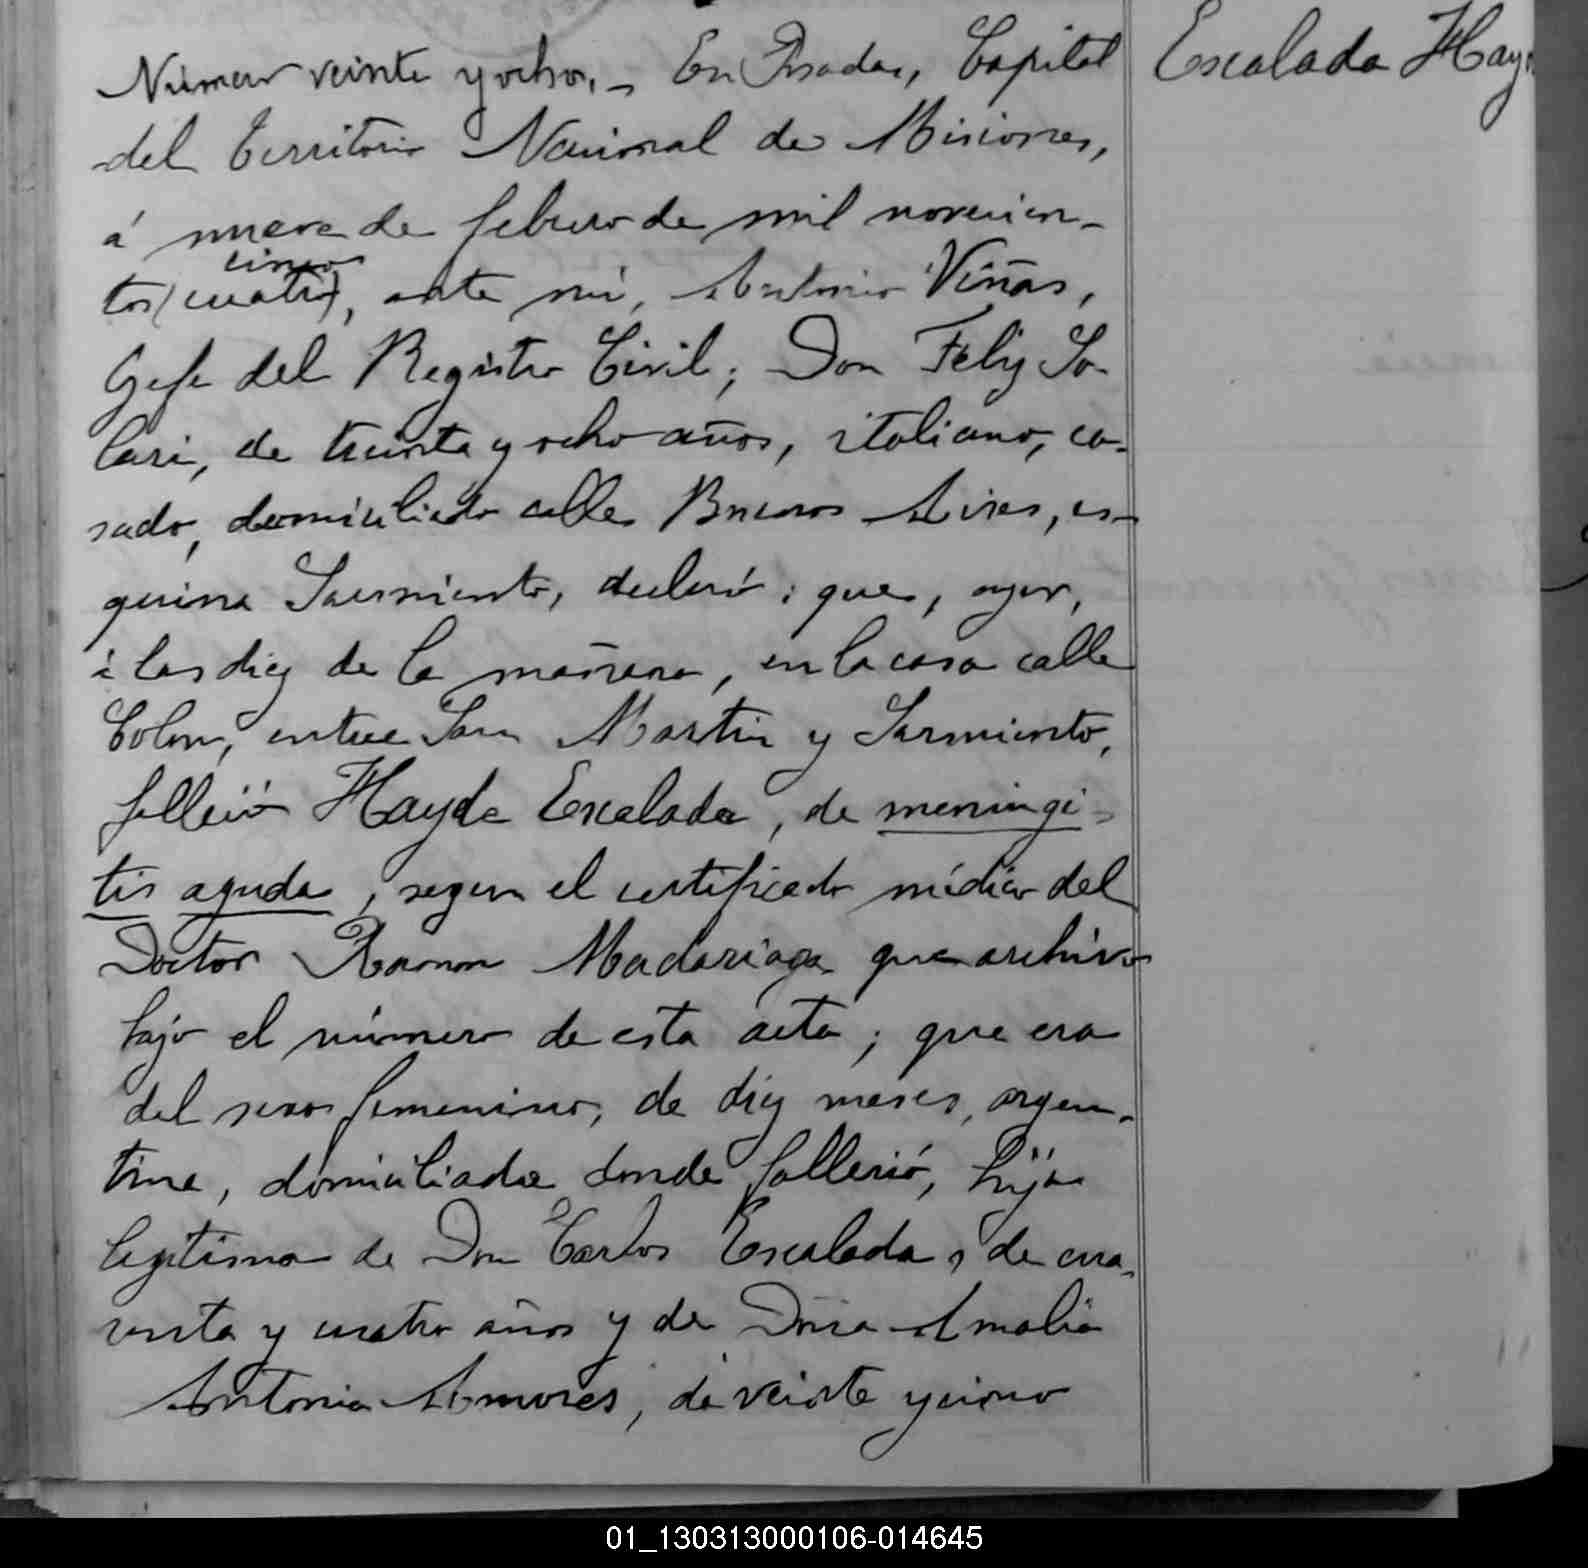 Número veinte y ocho._ En Posadas, Capital
Escalada Hay
del Territorio Nacional de Misiones,
á nueve de febrero de mil novecien-
cinco
tos (cuatro), ante mí, Antonio Viñas,
Gefe del Registro Civil; Don Feliz So-
lari, de treinta y ocho años, italiano, ca-
sado, domiciliado calle Buenos Aires, es-
quina Sarmiento, declaró: que, ayer,
á las diez de la mañana, en la casa calle
Colon, entre San Martin y Sarmiento,
falleció Hayde Escalada, de meningi-
tis aguda, segun el certificado médico del
Doctor Ramon Madariaga que archivo
bajo el número de esta acta; que era
del sexo femenino, de diez meses, argen-
tina, domiciliada donde falleció, hija
legitima de Don Carlos Escalada, de cua-
renta y cuatro años y de Doña Amalia
Antonia Amores, de veinte y cinco
01_130313000106-014645